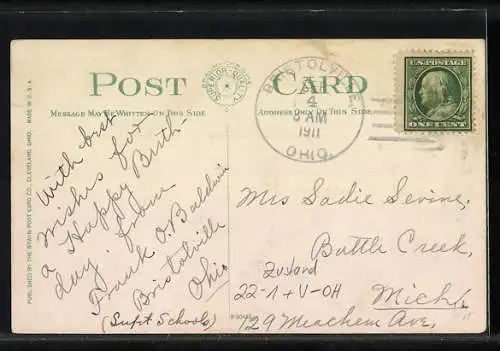 POST CARD
SUPERIOR QUALITY
MESSAGE MAY BE WRITTEN ON THIS SIDE
ADDRESS ONLY ON THIS SIDE
MADE IN U.S.A.
PUBLISHED BY THE BRAUN POST CARD CO., CLEVELAND, OHIO.
BRISTOLVILLE
4
AM
1911
OHIO.
U.S. POSTAGE
ONE CENT
With best
wishes for
a Happy Birth-
day, from
Frank O. Baldwin
Bristolville
Ohio
(Supt Schools)
Mrs Sadie Levine,
Battle Creek,
Zustand
22-1+V-OH
Mich.
129 Meachem Ave,